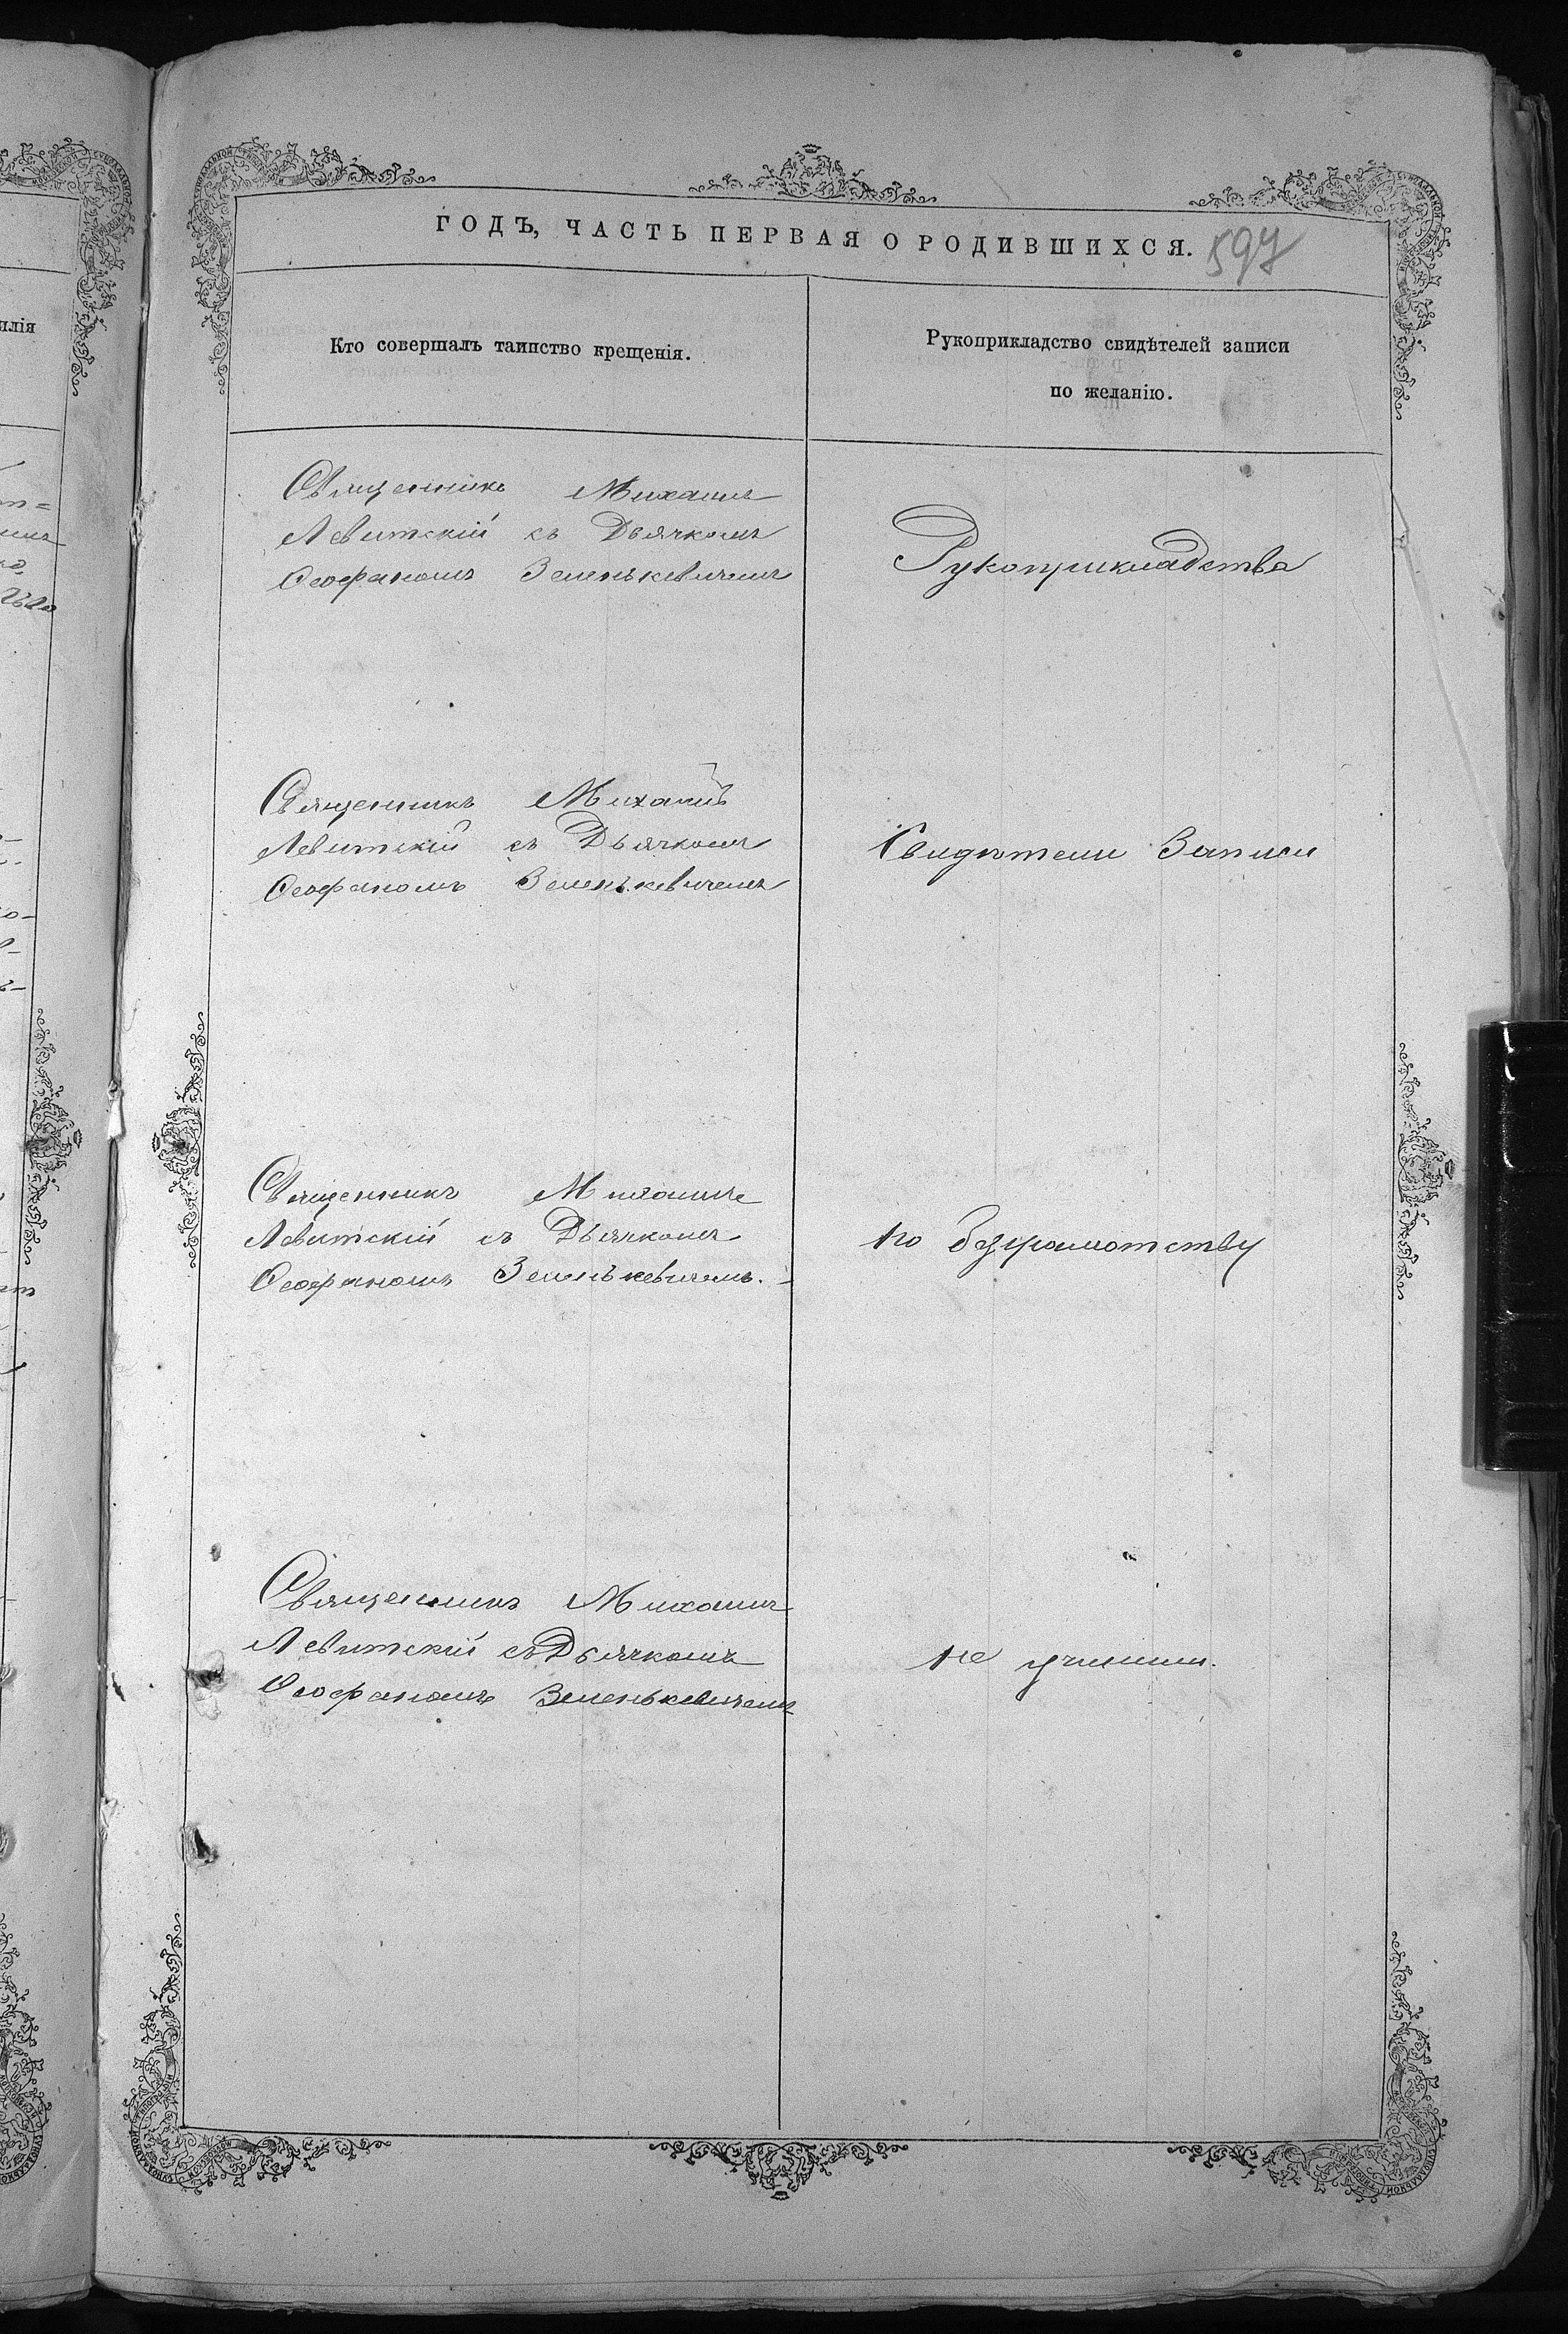 ГОДЪ, ЧАСТЬ ПЕРВАЯ О РОДИВШИХСЯ.
597
Кто совершалъ таинство крещенія.
Рукоприкладство свидѣтелей записи
по желанію.
Священникъ Михаилъ
Левитскій съ Дьячкомъ
Ѳеофаномъ Зеленькевичемъ
Рукоприкладства
Священникъ Михаилъ
Левитскій съ Дьячкомъ
Ѳеофаномъ Зеленькевичемъ
Свидѣтели Записи
Священникъ Михаилъ
Левитскій съ Дьячкомъ
Ѳеофаномъ Зеленькевичемъ.
по безграмотству
Священникъ Михаилъ
Левитскій съ Дьячкомъ
Ѳеофаномъ Зеленькевичемъ
не учинили.